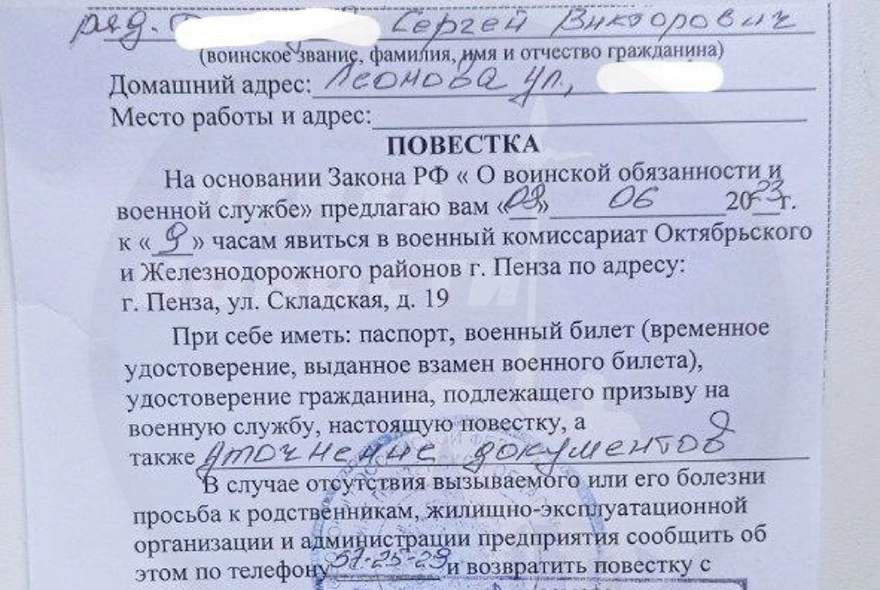 ряд. Сергей Викторович
(воинское звание, фамилия, имя и отчество гражданина)
Домашний адрес: Леонова ул.,
Место работы и адрес:
ПОВЕСТКА
На основании Закона РФ « О воинской обязанности и
военной службе» предлагаю вам «08» 06 2023г.
к « 9 » часам явиться в военный комиссариат Октябрьского
и Железнодорожного районов г. Пенза по адресу:
г. Пенза, ул. Складская, д. 19
При себе иметь: паспорт, военный билет (временное
удостоверение, выданное взамен военного билета),
удостоверение гражданина, подлежащего призыву на
военную службу, настоящую повестку, а
также уточнение документов
В случае отсутствия вызываемого или его болезни
просьба к родственникам, жилищно-эксплуатационной
организации и администрации предприятия сообщить об
этом по телефону 57-25-29 и возвратить повестку с